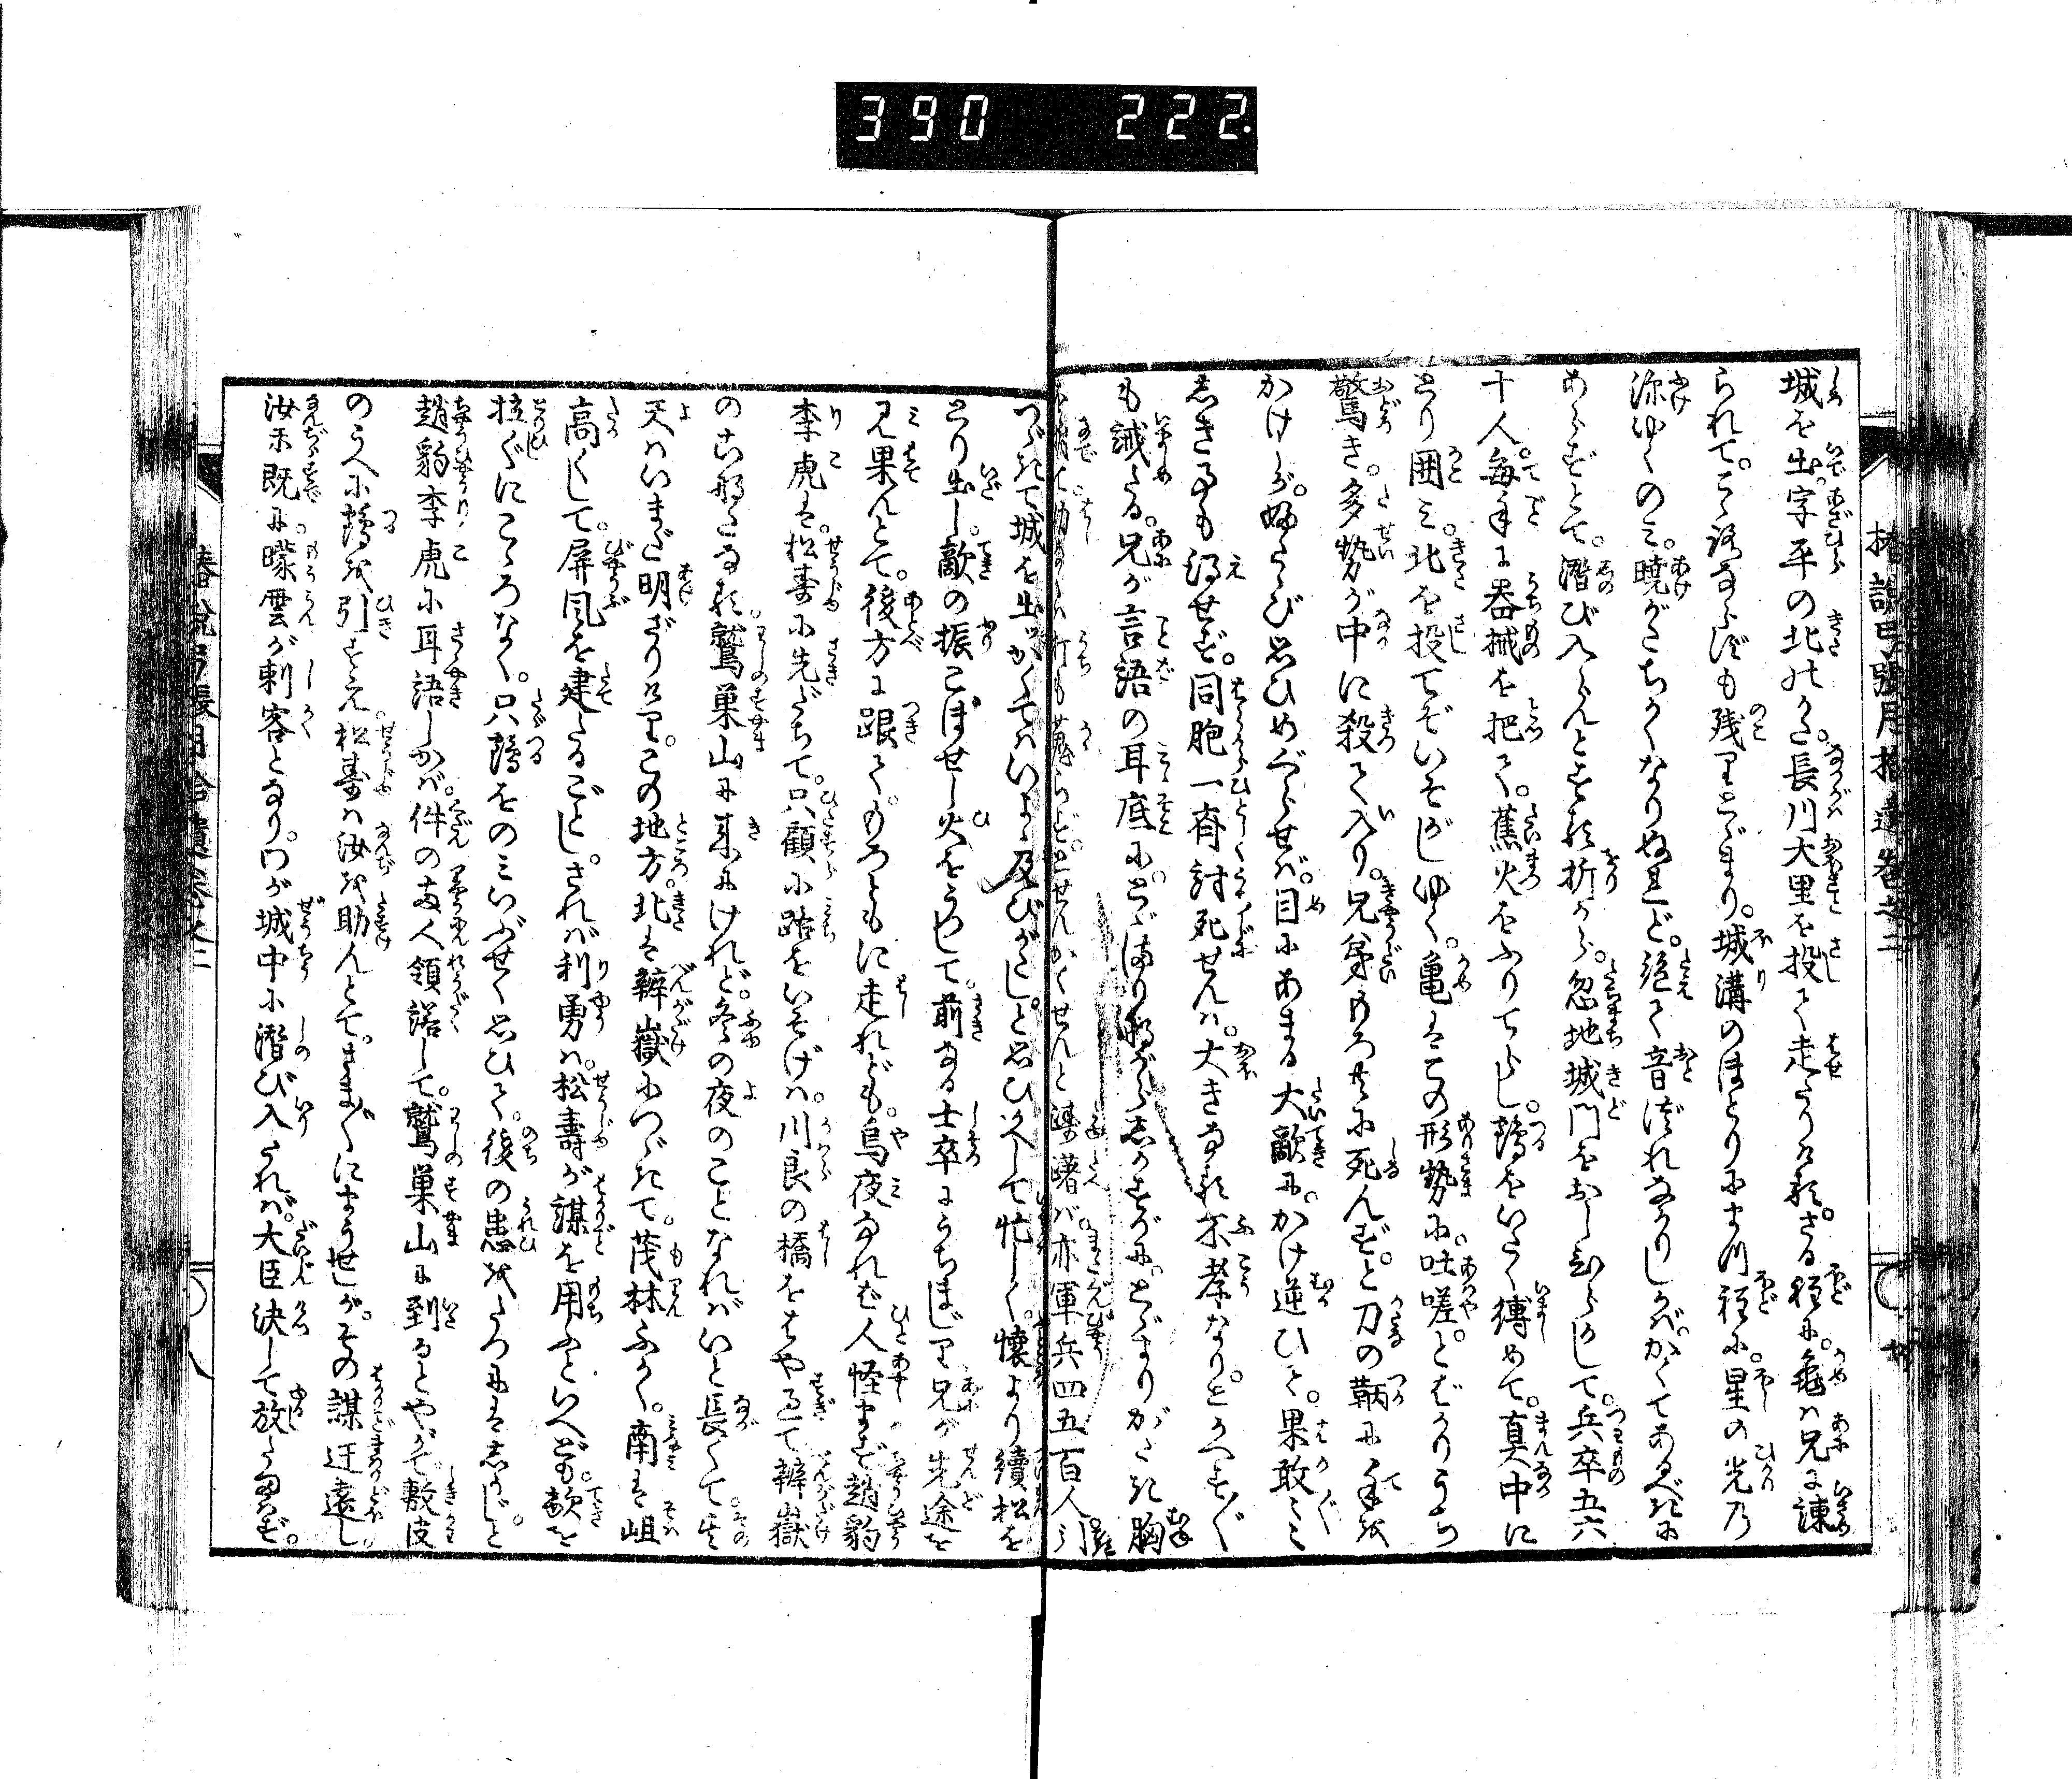 390 222.
椿説弓張月拾遺巻之二
城を出。字平の北れる。長川大里を投て走りける。さる程に。亀は兄に諫
られて。こゝろならずも残りとゞまり。城溝のほとりにまつ程に。星の光乃
深ゆくのみ。暁がたちかくなりぬれど。絶て音づれなかりしかば。かくてあるべきに
あらずとて。潜び入らんとする折から。忽地城門をおしひらかして。兵卒五六
十人。毎手に器械を把て。蕉火をふりてらし。鶴をいたく縛めて。真中に
とり囲み。北を投ていそがしゆく。亀はこの形勢に。吐嗟。とばかりうち
驚き。多勢が中に殺て入り。兄弟もろ共に死んず。と刀の鞆に手を
かけしが。ふたゝび思ひめぐらせば。目にあまる大敵に。かけ逆ひて。果敢々々
しき事も得せず。同胞一斉討死せんは。大きなる不孝なり。とかへす〲
も誡たる。兄が言語の耳底に。とゞまりながらしかすがに。とゞまりがたき胸
つゞきて城を出。かくてはいよゝ及びがたし。と思ひかへして忙しく。懐より続松を
とり出し。敵の振こぼせし火をうつして。前なる士卒にうちまじり。兄が先途を
見果んとて。後方に跟て。もろともに走れども。烏夜なれば人怪まず。趙豹
李虎は。松寿に先だちて。只顧に路をいそげば。川良の橋をはや過て。辨嶽
のこなたなる。鷲巣山に来にけれど。冬の夜のことなれば。いと長くて。その
天はいまだ明ざりけり。この地方。北は辨嶽につゞきて。茂林ふかく。南は岨
高くして。屏風を建たるごとし。されば利勇は。松寿が謀を用ふといへども。敵を
拉ぐにこゝろなく。只鶴をのみいぶせく思ひて。後の患をたつにはしかじ。と
趙豹李虎に耳語しかば。件の両人領諾して。鷲巣山に到るとやがて。敷皮
のうへに鶴を引すえ。松寿は汝を助んとて。さま〲にまうせしが。その謀迂遠し。
汝等既に。曚雲が刺客となり。わが城中に潜び入たれば。大臣決して放し給はず。
椿説弓張月拾遺巻之二
八